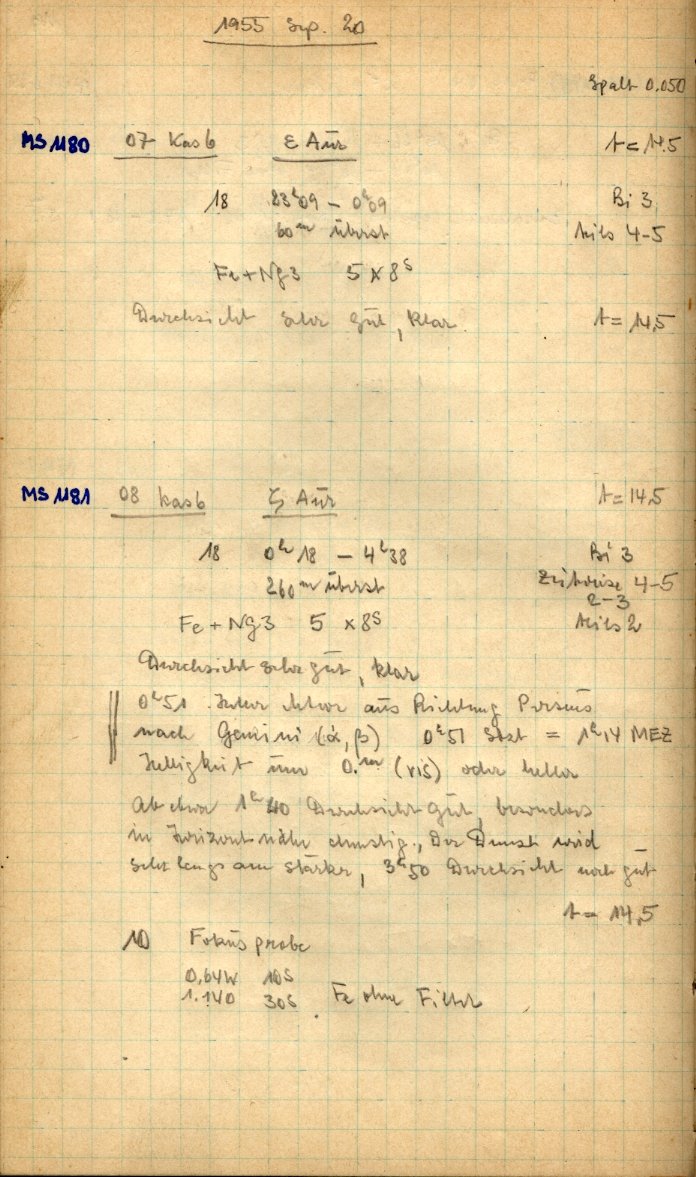 1955 Sep. 20
Spalt 0.050
MS 1180 07 Kas b ε Aur t = 14.5
18 23h09 – 0h09 Bi 3
60m überst 4-5
Fe + Ng3 5 x 8s
Durchsicht sehr gut, klar. t = 14,5
MS 1181 08 Kas b ζ Aur t = 14,5
18 0h18 – 4h38 Bi 3
260m überst Zeitweise 4-5
2-3
Fe + Ng3 5 x 8s 2
Durchsicht sehr gut, klar
0h51 aus Richtung Perseus
nach Gemini (α, β) 0h51 = 1h14 MEZ
Helligkeit um 0.m (vis) oder heller
Ab etwa 1h40 Durchsicht gut, besonders
in Horizontnähe dunstig. Der Dunst wird
sehr langsam stärker, 3h50 Durchsicht noch gut
t = 14,5
10 Fokusprobe
0,64W 10s
1.140 30s Fe ohne Filter